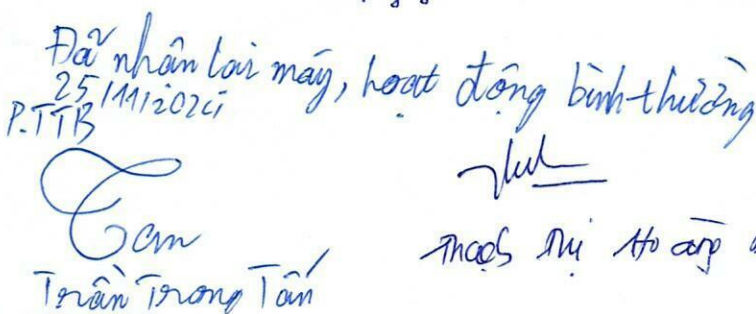 Đã nhận lại máy, hoạt động bình thường
25/11/2024
P.TTB
Trần Trọng Tấn
Thạch Thị Hoàng